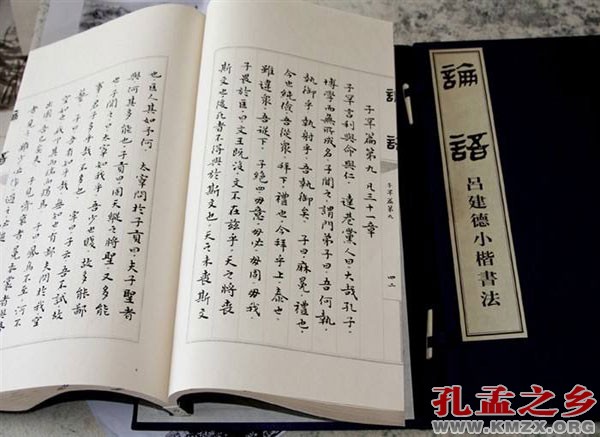 子罕篇第九 凡三十一章
子罕言利與命與仁 達巷黨人曰大哉孔子
博學而無所成名子聞之謂門弟子曰吾何執
執御乎執射乎吾執御矣 子曰麻冕禮也
今也純儉吾從衆 拜下禮也今拜乎上泰也
雖違衆吾從下 子絕四毋意毋必毋固毋我
子畏於匡曰文王既沒文不在兹乎天之將喪
斯文也後死者不得與於斯文也天之未喪斯文
論語
子罕篇第九
四二
也匡人其如予何 太宰問於子貢曰夫子聖者
與何其多能也子貢曰固天縱之將聖又多能
也子聞之曰太宰知我乎吾少也賤故多能鄙
事君子多乎哉不多也 牢曰子云吾不試故
論語
吕建德小楷書法
孔孟之乡
WWW.KMZX.ORG